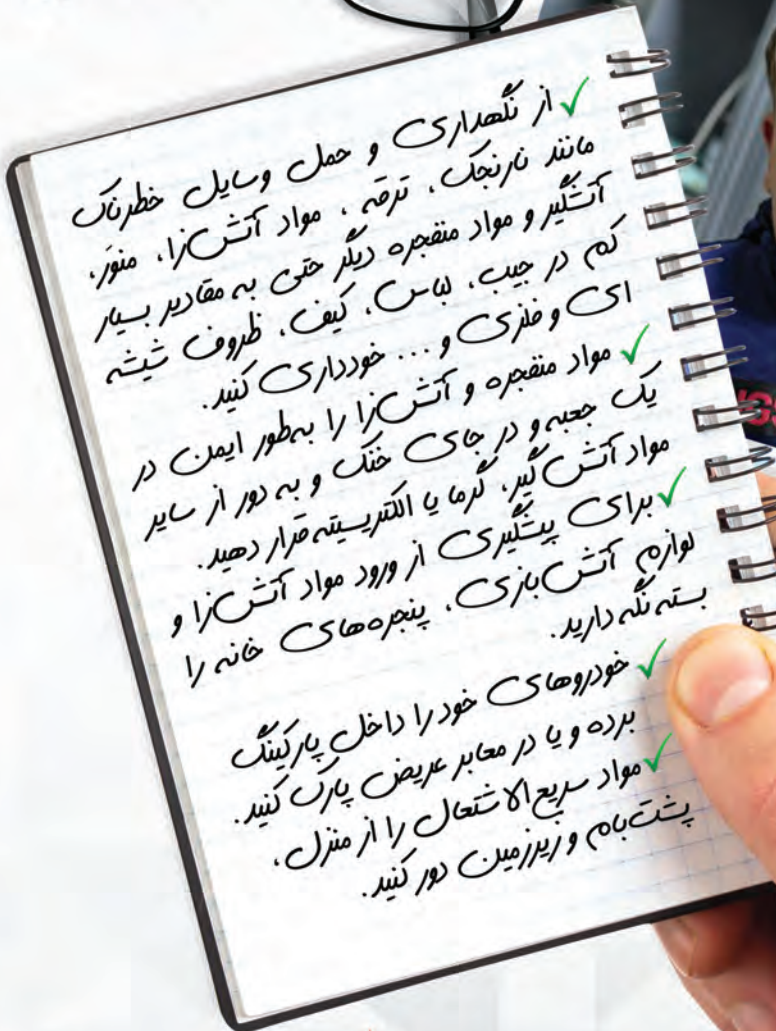 ✓ از نگهداری و حمل وسایل خطرناک
مانند نارنجک، ترقه، مواد آتش‌زا، منوّر،
آتشگیر و مواد منفجره دیگر حتی به مقادیر بسیار
کم در جیب، لباس، کیف، ظروف شیشه
ای و فلزی و... خودداری کنید.
✓ مواد منفجره و آتش‌زا را به‌طور ایمن در
یک جعبه و در جای خنک و به دور از سایر
مواد آتش‌گیر، گرما یا الکتریسیته قرار دهید.
✓ برای پیشگیری از ورود مواد آتش‌زا و
لوازم آتش‌بازی، پنجره‌های خانه را
بسته نگه دارید.
✓ خودروهای خود را داخل پارکینگ
برده و یا در معابر عریض پارک کنید.
✓ مواد سریع‌الاشتعال را از منزل،
پشت‌بام و زیرزمین دور کنید.